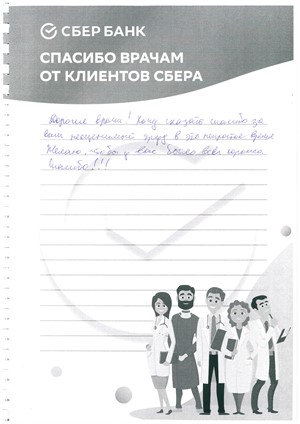 СБЕР БАНК
СПАСИБО ВРАЧАМ
ОТ КЛИЕНТОВ СБЕРА
Дорогие врачи! Хочу сказать спасибо за
ваш неоценимый труд в это непростое время
Желаю, чтобы у вас было всё хорошо
Спасибо!!!